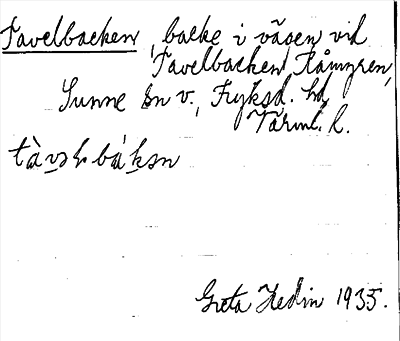 Tavelbacken, backe i vägen vid
Tavelbacken, Råmyren,
Sunne sn v., Fryksd. hd,
Värml. l.
tàvəl bákən
Greta Hedin 1935.